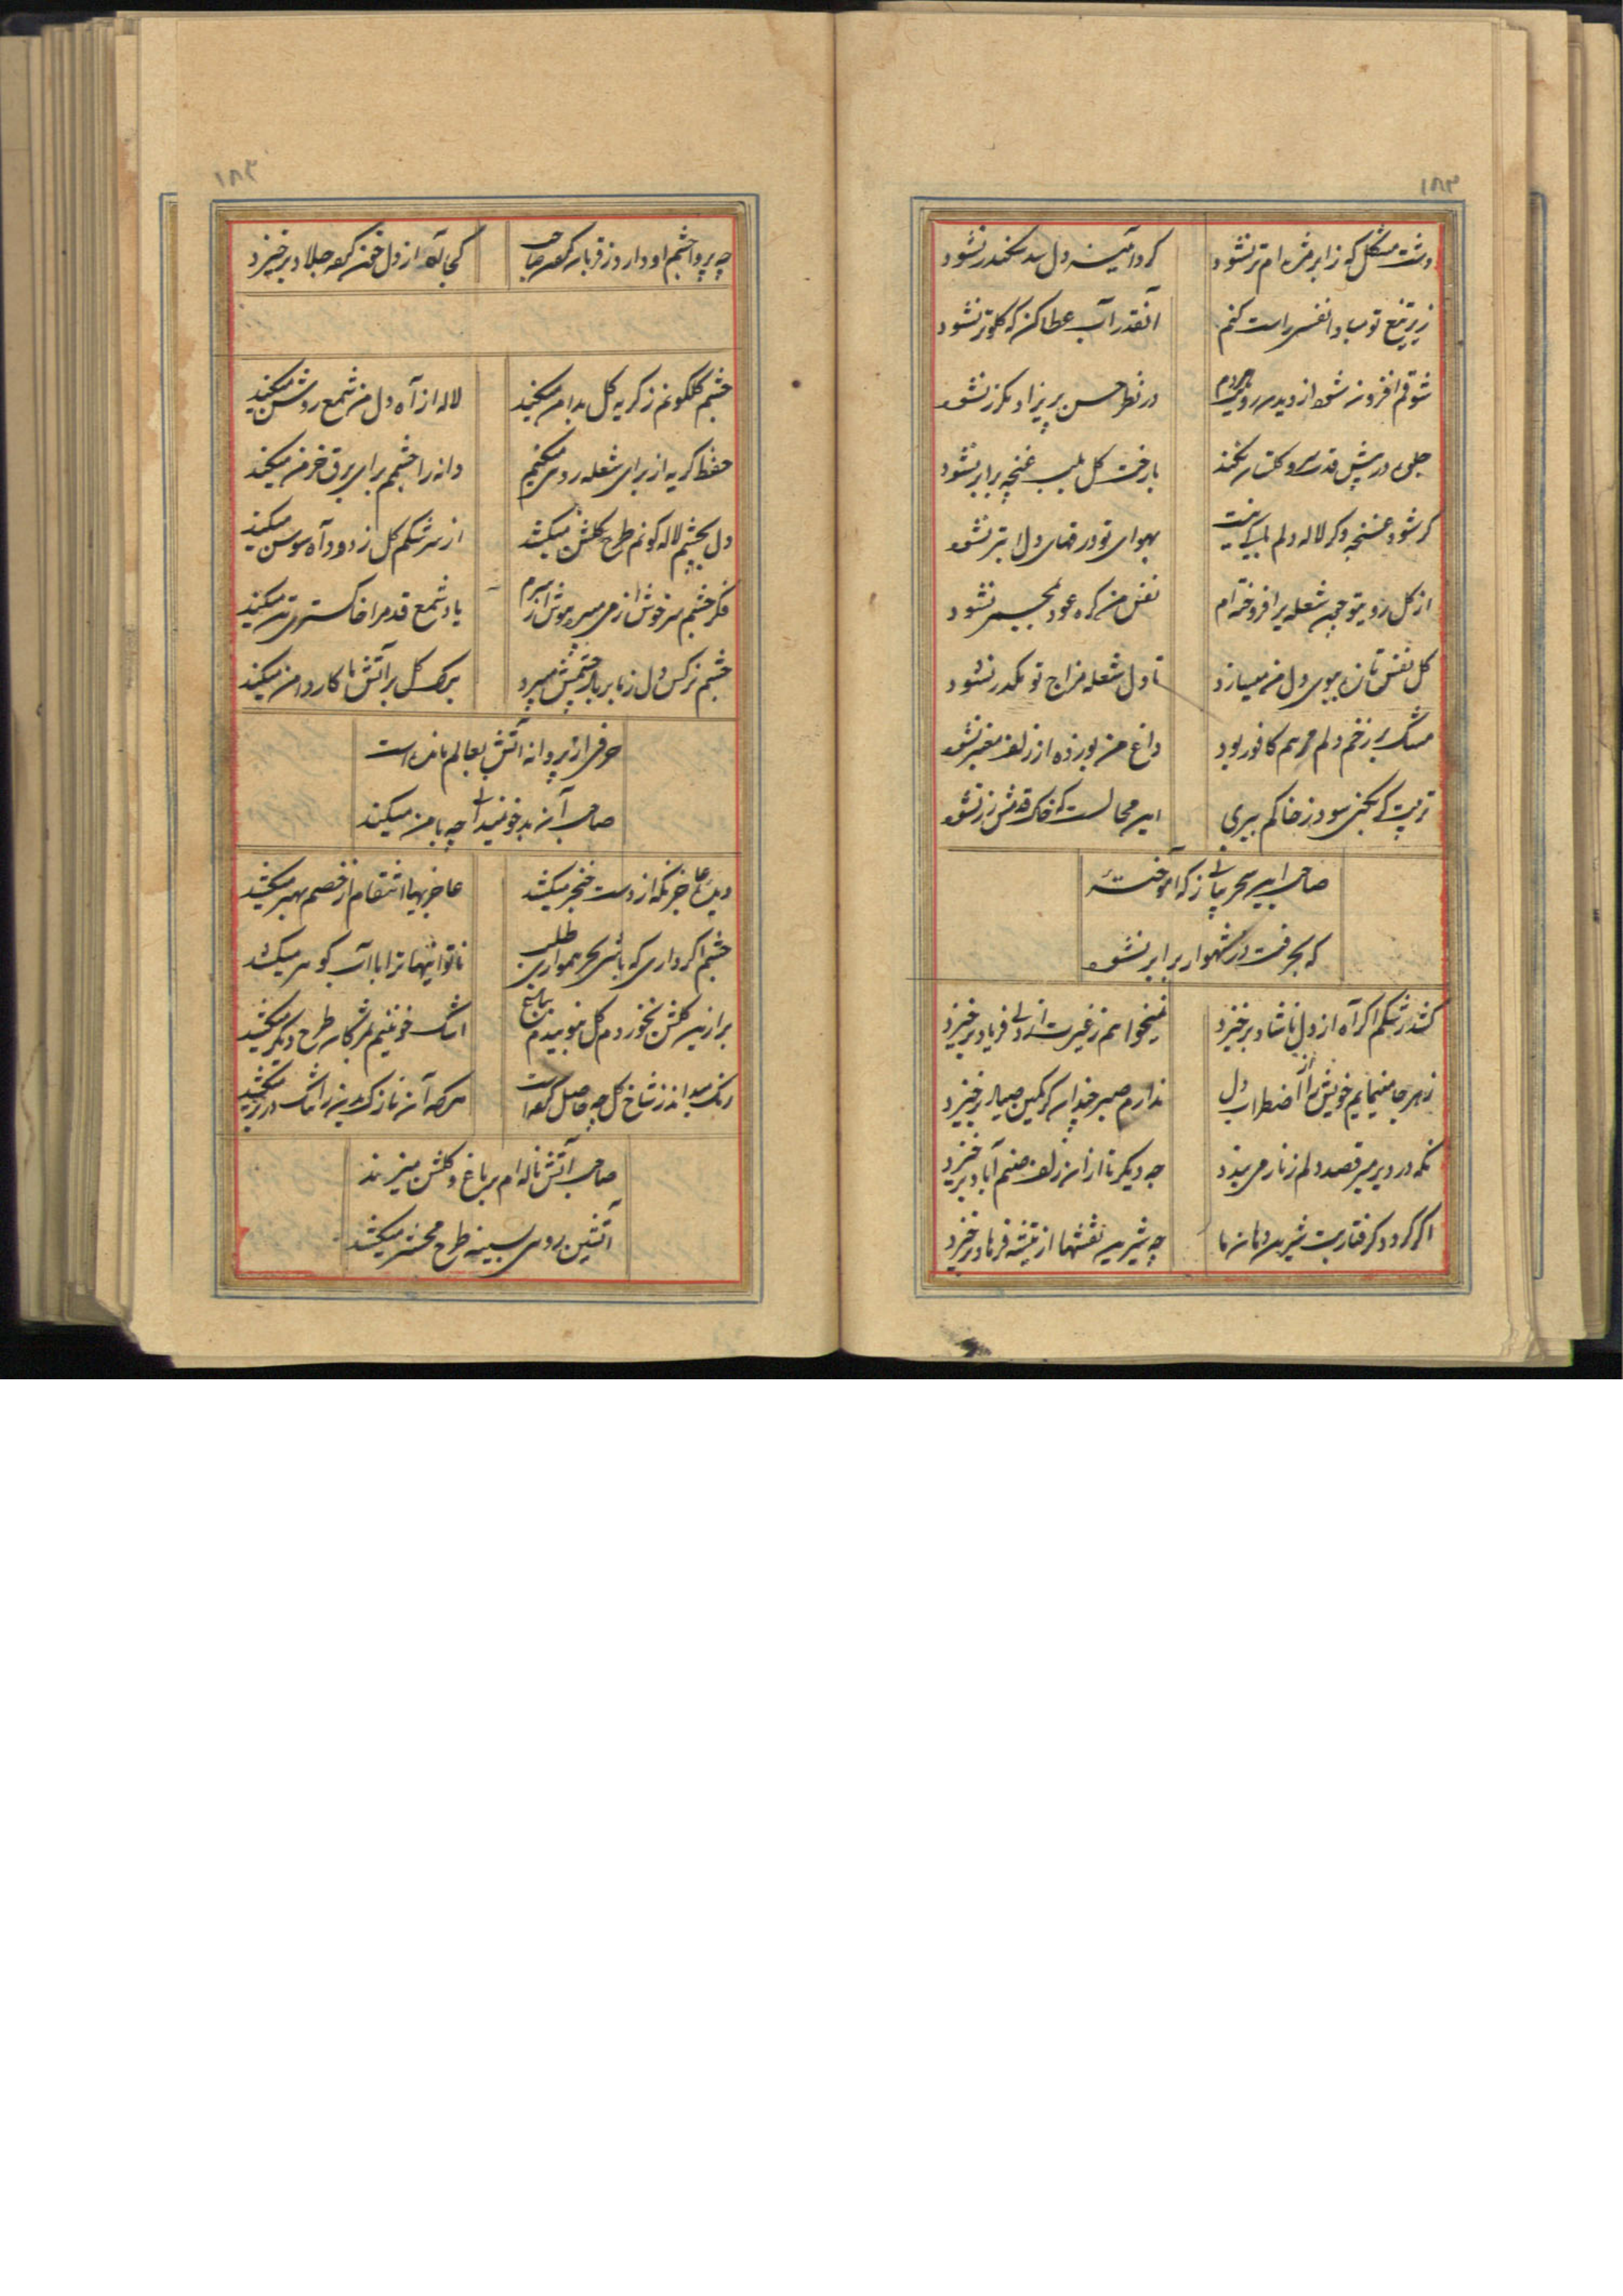 ۱۸۳
دشت مشکل که ز ابر مژه ام تر نشود
کرد آئینه دل سد سکندر نشود
زیر تیغ تو مبادا نفسی راست کنم
آنقدر آب عطا کن که کلو تر نشود
شوقم افزون شود از دیدن رویت هر دم
در نظر حسن پریزاد مکرر نشود
جلوه در پیش قدت سرو کلستان نکند
با رخت کل بلب غنچه برابر نشود
کر شود غنچه و کر لاله دلم
بهوای تو ورقهای دل ابتر نشود
از کل روی تو چون شعله برافروخته ام
نفس من کره عود بمجمر نشود
کل نفس تازه ببوی دل من میسازد
تا دل شعله مزاج تو مکدر نشود
مشک بر زخم دلم مرهم کافور بود
داغ من بوزده از زلف معنبر نشود
تربیت کر نکنی سود ز خاکم ببری
این محالست که خاک قدمش زر نشود
صاحب این سحر بیانی ز که آموخته
که بحرفت در شهوار برابر نشود
کشد رشکم اکر آه از دل ناشاد برخیزد
نمیخواهم ز غیرت از دلی فریاد برخیزد
ز هر جا مینمایم خویش را از اضطراب دل
ندارم صبر چندان کز کمین صیاد برخیزد
نکه در دیر میرقصد دلم زنار می بندد
چه دیکر تا از آن زلف صنم آباد برخیزد
اکر کردد کرفتارت شیرین دهان ما
چه شیرین نقشها از تیشه فرهاد برخیزد
۱۸۳
چه پروا چشم او دارد ز قربان کهن صاحب
کجا آه از دل خون کرده جلاد برخیزد
چشم کلکونم ز کریه کل بدامن میکند
لاله از آه دل من شمع روشن میکند
حفظ کریه از برای شعله روی میکنم
دانه را چشمم برای برق خرمن میکند
دل بچشم لاله کونم طرح کلشن میکشد
از سرشکم کل ز دود آه سوسن میکند
فکر چشم سرخوش از می میبرد هوش از سرم
یاد شمع قد مرا خاکستر تن میکند
چشم نرکس دل ز ما بر باد چشمش میبرد
برک کل بر آتش ما کار دامن میکند
حرفی از پروانه آتش بعالم مانده است
صاحب آن بدخو نمیدانی چه با من میکند
دیده عاجز نکه از دست خنجر میکشد
عاجزیها انتقام از خصم بهتر میکشد
چشم اکر داری که باشی بحر همواری طلب
ناتوانیها ترا با آب کوهر میکشد
بر از سیر کلشن نخوردم کل نبوییدم بباغ
اشک خونینم بمژکان طرح دیکر میکشد
رنک میبازد ز شاخ کل چه حاصل کرده است
هر که آن نازک بدن را تنک در بر میکشد
صاحب آتش ناله ام بر باغ و کلشن میزند
آتشین روی بسینه طرح محشر میکشد